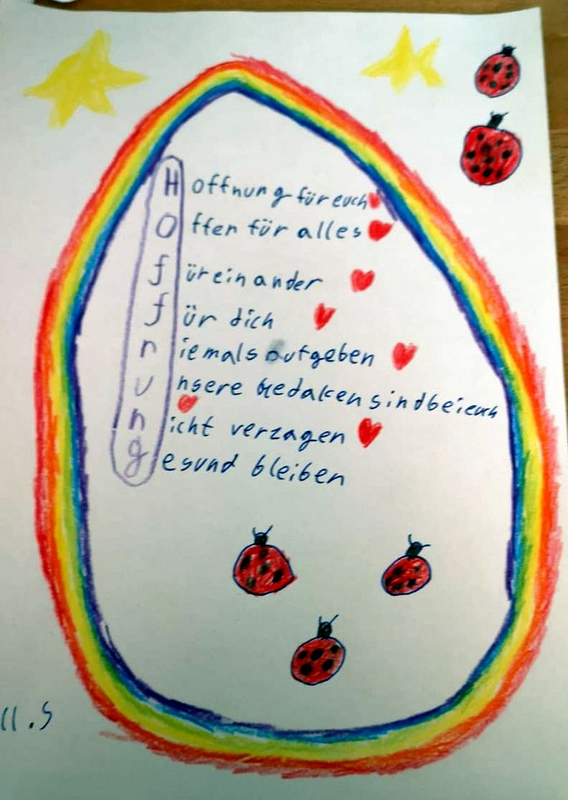 Hoffnung für euch
Offen für alles
füreinander
für dich
niemals aufgeben
unsere Gedaken sind bei euch
nicht verzagen
gesund bleiben